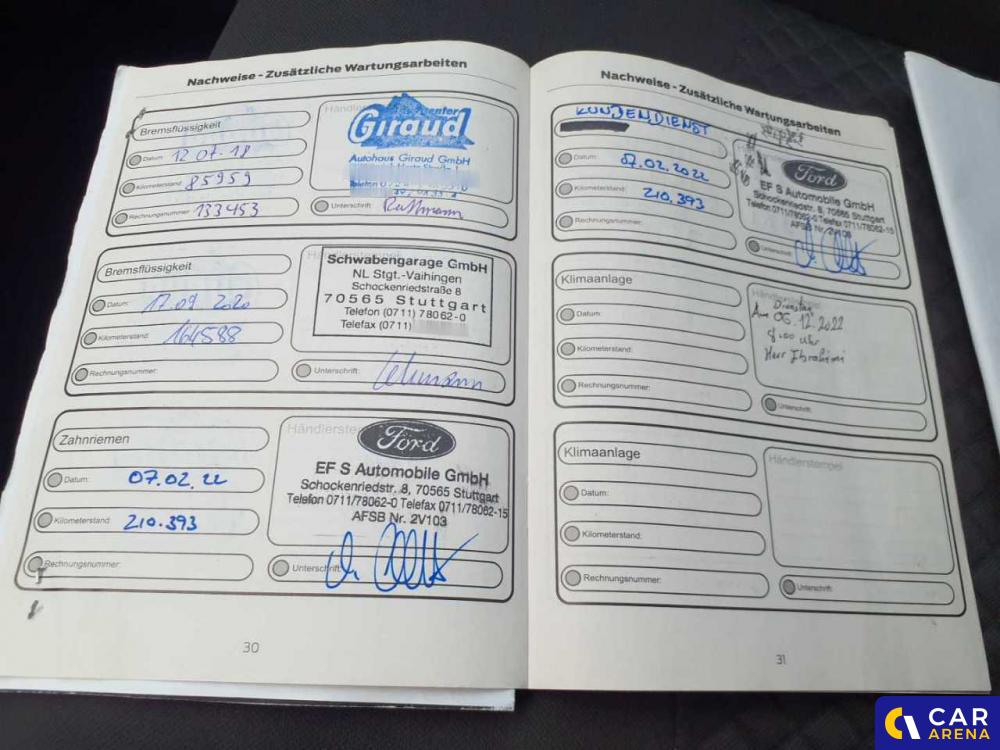 Nachweise - Zusätzliche Wartungsarbeiten
Bremsflüssigkeit
Datum: 12.07.18
Kilometerstand: 85959
Rechnungsnummer: 133453
Giraud
Autohaus Giraud GmbH
Unterschrift:
Bremsflüssigkeit
Datum: 17.09.2020
Kilometerstand: 164588
Rechnungsnummer:
Schwabengarage GmbH
NL Stgt.-Vaihingen
Schockenriedstraße 8
70565 Stuttgart
Telefon (0711) 78062-0
Telefax (0711)
Unterschrift: Lehmann
Zahnriemen
Datum: 07.02.22
Kilometerstand: 210.393
Rechnungsnummer:
Händlerstempel
Ford
EF S Automobile GmbH
Schockenriedstr. 8, 70565 Stuttgart
Telefon 0711/78062-0 Telefax 0711/78062-15
AFSB Nr. 2V103
Unterschrift:
30
Nachweise - Zusätzliche Wartungsarbeiten
KUNDENDIENST
Datum: 07.02.2022
Kilometerstand: 210.393
Rechnungsnummer:
Ford
EF S Automobile GmbH
Schockenriedstr. 8, 70565 Stuttgart
Telefon 0711/78062-0 Telefax 0711/78062-15
AFSB Nr. 2V103
Unterschrift:
Klimaanlage
Datum:
Kilometerstand:
Rechnungsnummer:
Händlerstempel
Dienstag
Am 06.12.2022
8.00 Uhr
Herr Ibrahimi
Unterschrift:
Klimaanlage
Datum:
Kilometerstand:
Rechnungsnummer:
Händlerstempel
Unterschrift:
31
CAR
ARENA